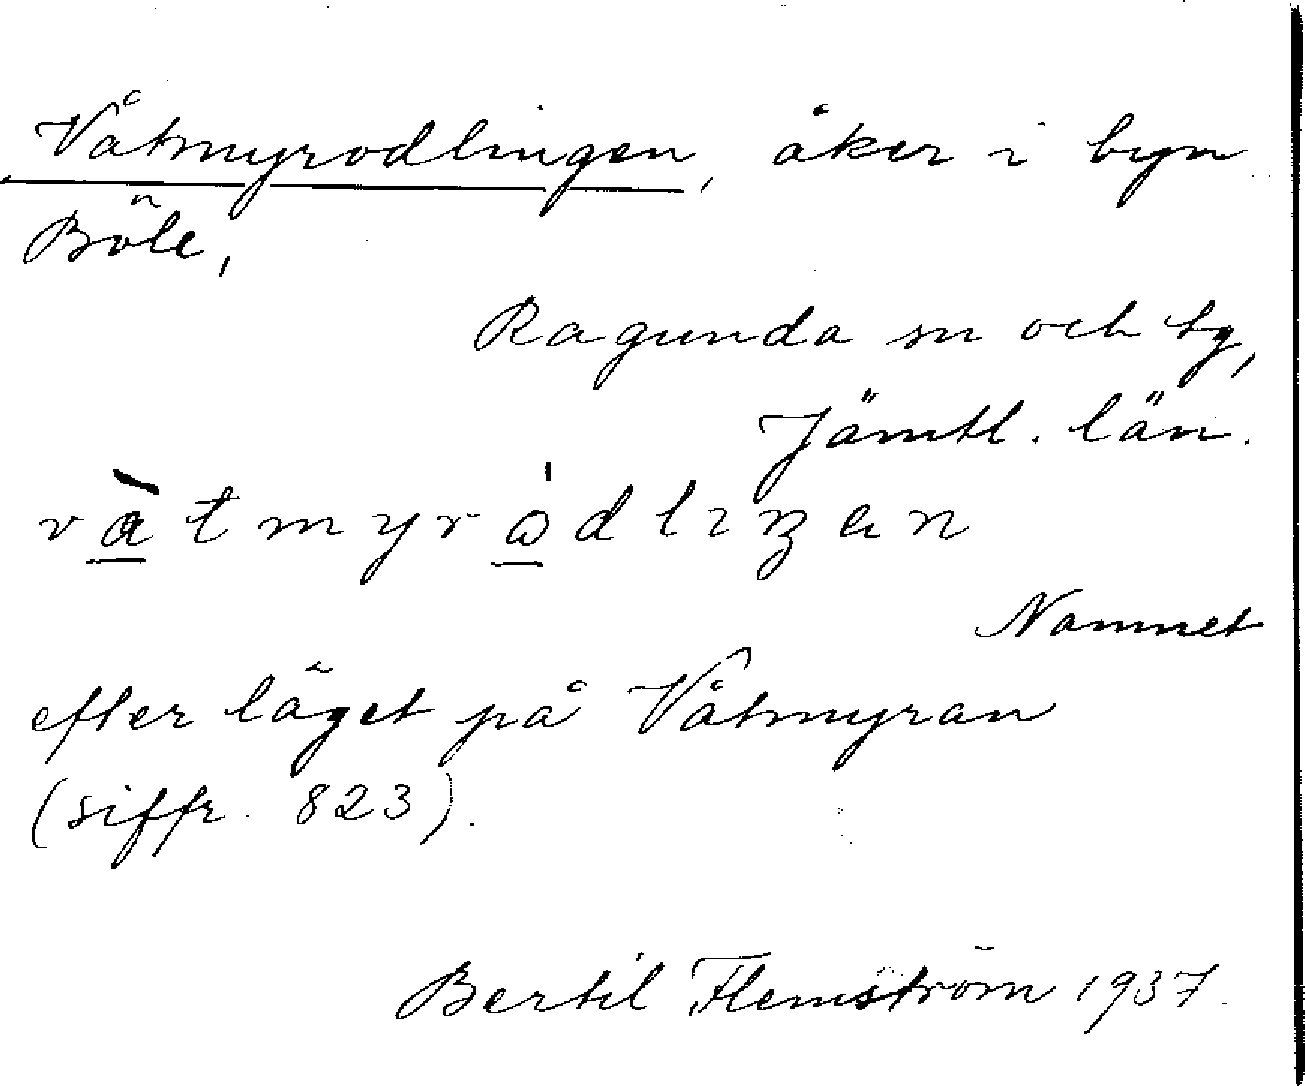 Våtmyrodlingen, åker i byn
Böle,
Ragunda sn och tg,
Jämtl. län.
Namnet
efter läget på Våtmyran
(siffr. 823).
Bertil Flemström 1937.